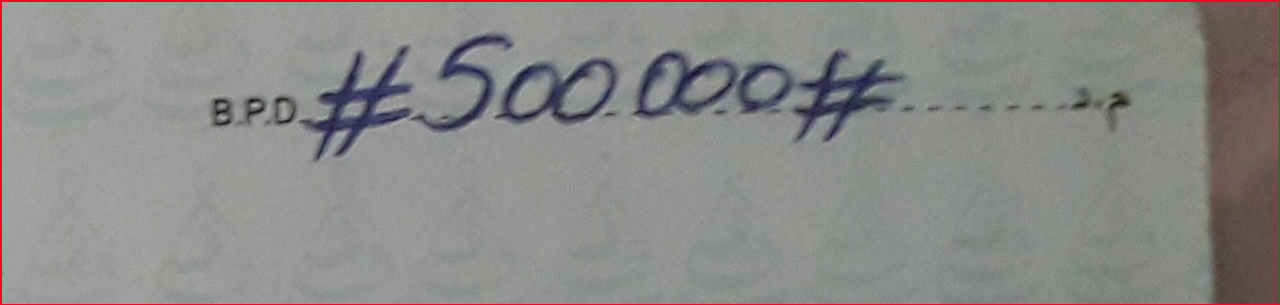 B.P.D. #500.000# م.د.